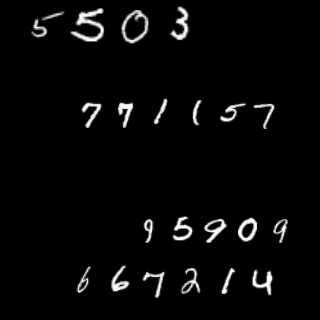 5503
771157
95909
667214